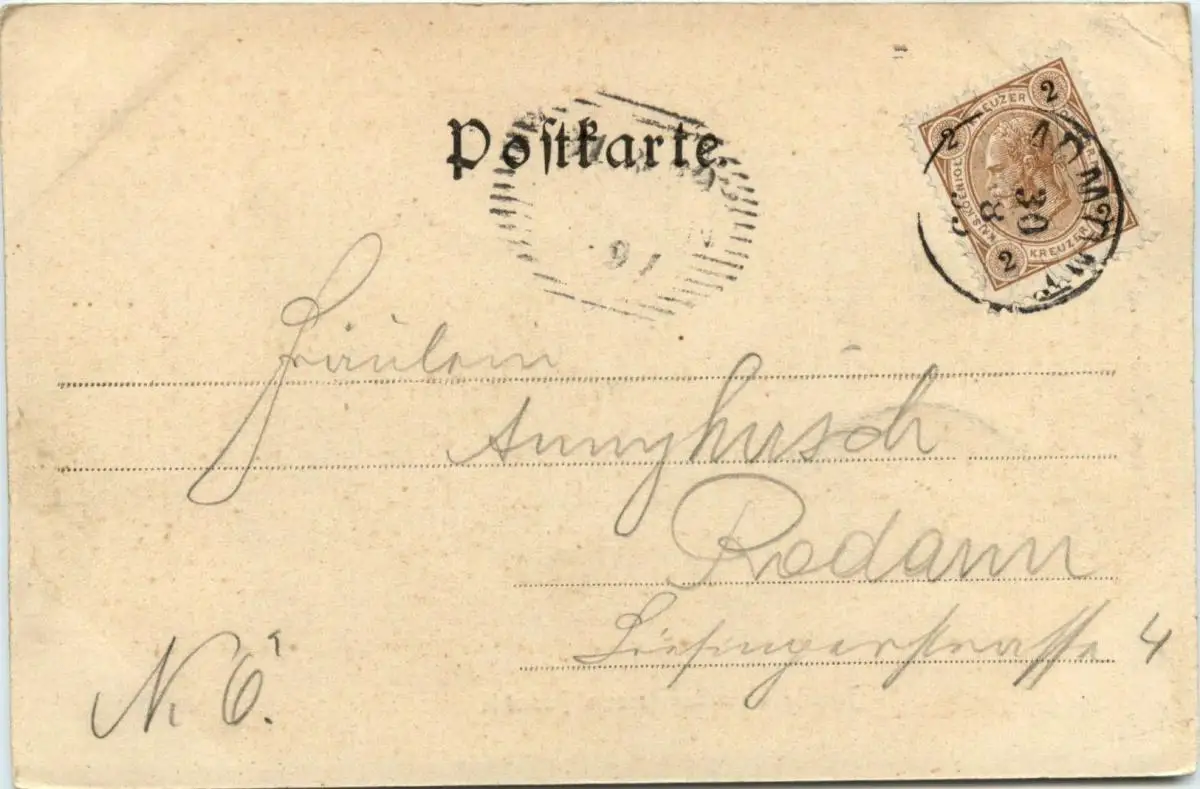 Postkarte.
2 KREUZER 2
KAIS. KÖNIGL.
2 KREUZER
30
8
97
Fräulein
Rodaun
Liesingerstrasse 4
N. 6.